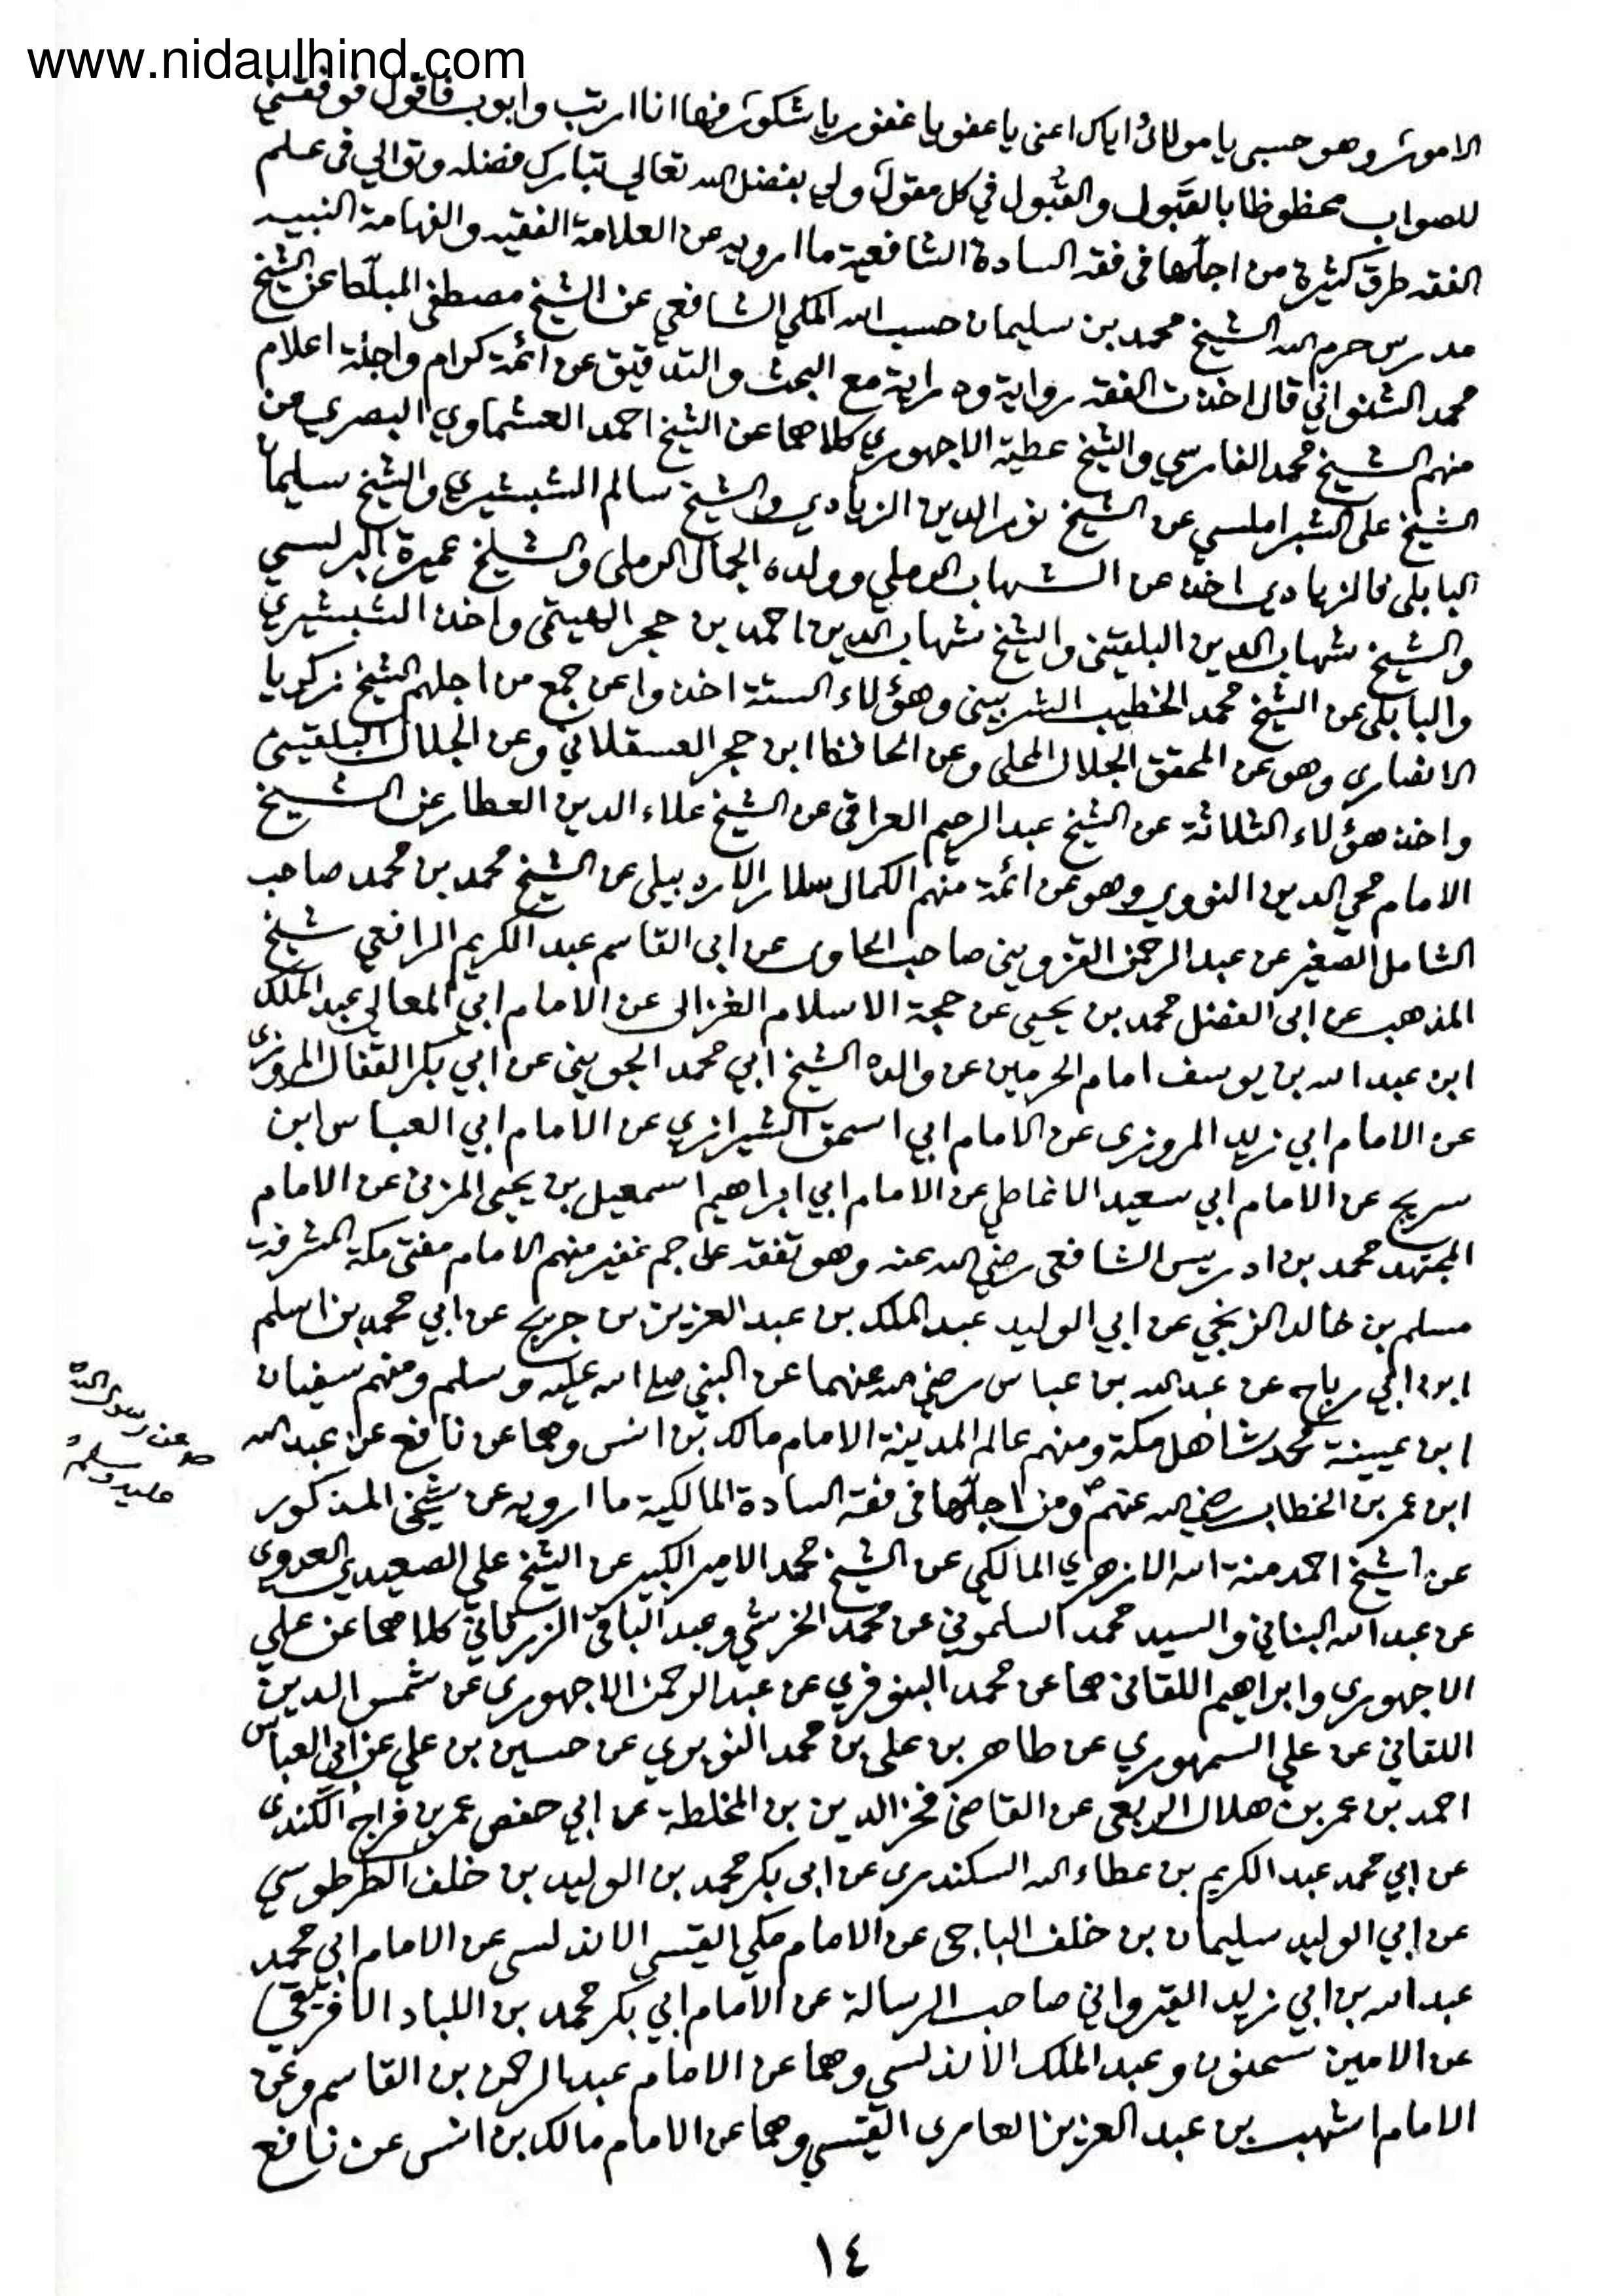 www.nidaulhind.com
الامور وهو حسبي يا مولائ اياك اعنى يا عفو يا غفور يا شكور فها انا ارتب وابوب فاقول فوفقني
للصواب محظوظا بالقبول والقبول في كل مقول ولي بفضل الله تعالى تبارك فضله وتوالي فى علم
الفقه طرق كثيرة من اجلّها فى فقه السادة الشافعية ما ارويه عن العلامة الفقيه والفهامة النبيه
مدرس حرم الله الشيخ محمد بن سليمان حسب الله المكي الشافعي عن الشيخ مصطفى المبلّط عن الشيخ
محمد الشنواني قال اخذت الفقه رواية ودراية مع البحث والتدقيق عن ائمة كرام واجلة اعلام
منهم الشيخ محمد الفارسي والشيخ عطية الاجهوري كلاهما عن الشيخ احمد العشماوي البصري من
الشيخ على الشبراملسي عن الشيخ نور الدين الزيادي والشيخ سالم الشبشيري والشيخ سليمان
البابلى فالزيادي اخذ عن الشهاب الرملي وولده الجمال الرملى والشيخ عميرة البرلسي
والشيخ شهاب الدين البلقينى والشيخ شهاب الدين احمد بن حجر الهيتمى واخذ الشبشيري
والبابلى عن الشيخ محمد الخطيب الشربينى وهؤلاء الستة اخذوا عن جمع من اجلهم الشيخ زكريا
الانصارى وهو عن المحقق الجلال المحلى وعن الحافظ ابن حجر العسقلاني وعن الجلال البلقينى
واخذ هؤلاء الثلاثة عن الشيخ عبد الرحيم العراقى عن الشيخ علاء الدين العطار عن الشيخ
الامام محي الدين النووي وهو عن ائمة منهم الكمال سلار الاردبيلى عن الشيخ محمد بن محمد صاحب
الشامل الصغير عن عبد الرحمن القزوينى صاحب الحاوى عن ابى القاسم عبد الكريم الرافعي شيخ
المذهب عن ابى الفضل محمد بن يحيى عن حجة الاسلام الغزالى عن الامام ابي المعالي عبد الملك
ابن عبد الله بن يوسف امام الحرمين عن والده الشيخ ابي محمد الجوينى عن ابي بكر القفال المروزى
عن الامام ابي زيد المروزى عن الامام ابي اسحق الشيرازي عن الامام ابي العباس ابن
سريج عن الامام ابي سعيد الانماطي عن الامام ابي ابراهيم اسمعيل بن يحيى المزنى عن الامام
المجتهد محمد بن ادريس الشافعى رضي الله عنه وهو تفقه على جم غفير منهم الامام مفتى مكة المشرفة
مسلم بن خالد الزنجي عن ابي الوليد عبد الملك بن عبد العزيز بن جريج عن ابي محمد بن اسلم
ابن ابي رباح عن عبد الله بن عباس رضي الله عنهما عن النبي صلى الله عليه وسلم ومنهم سفيان
ابن عيينة محدث اهل مكة ومنهم عالم المدينة الامام مالك بن انس وهما عن نافع عن عبد الله
ابن عمر بن الخطاب رضي الله عنهم ومن اجلّها فى فقة السادة المالكية ما ارويه عن شيخى المذكور
عن رسول الله
ص
عليه وسلم
عن الشيخ احمد منة الله الازهري المالكي عن الشيخ محمد الامير الكبير عن الشيخ علي الصعيدي العدوى
عن عبد الله البناني والسيد محمد السلموني عن محمد الخرشي وعبد الباقى الزرقاني كلاهما عن علي
الاجهورى وابراهيم اللقانى هما عن محمد البنوفري عن عبد الرحمن الاجهورى عن شمس الدين
اللقاني عن علي السمهوري عن طاهر بن على بن محمد النويري عن حسين بن علي عن ابى العباس
احمد بن عمر بن هلال الربعى عن القاضى فخر الدين بن المخلطة عن ابي حفص عمر بن فراج الكندى
عن ابي محمد عبد الكريم بن عطاء الله السكندرى عن ابى بكر محمد بن الوليد بن خلف الطرطوسي
عن ابي الوليد سليمان بن خلف الباجى عن الامام مكي القيسي الاندلسى عن الامام ابي محمد
عبد الله بن ابي زيد القيرواني صاحب الرسالة عن الامام ابي بكر محمد بن اللباد الافريقي
عن الامين سحنون وعبد الملك الاندلسي وهما عن الامام عبد الرحمن بن القاسم وعن
الامام اشهب بن عبد العزيز العامرى القيسي وهما عن الامام مالك بن انس عن نافع
١٤